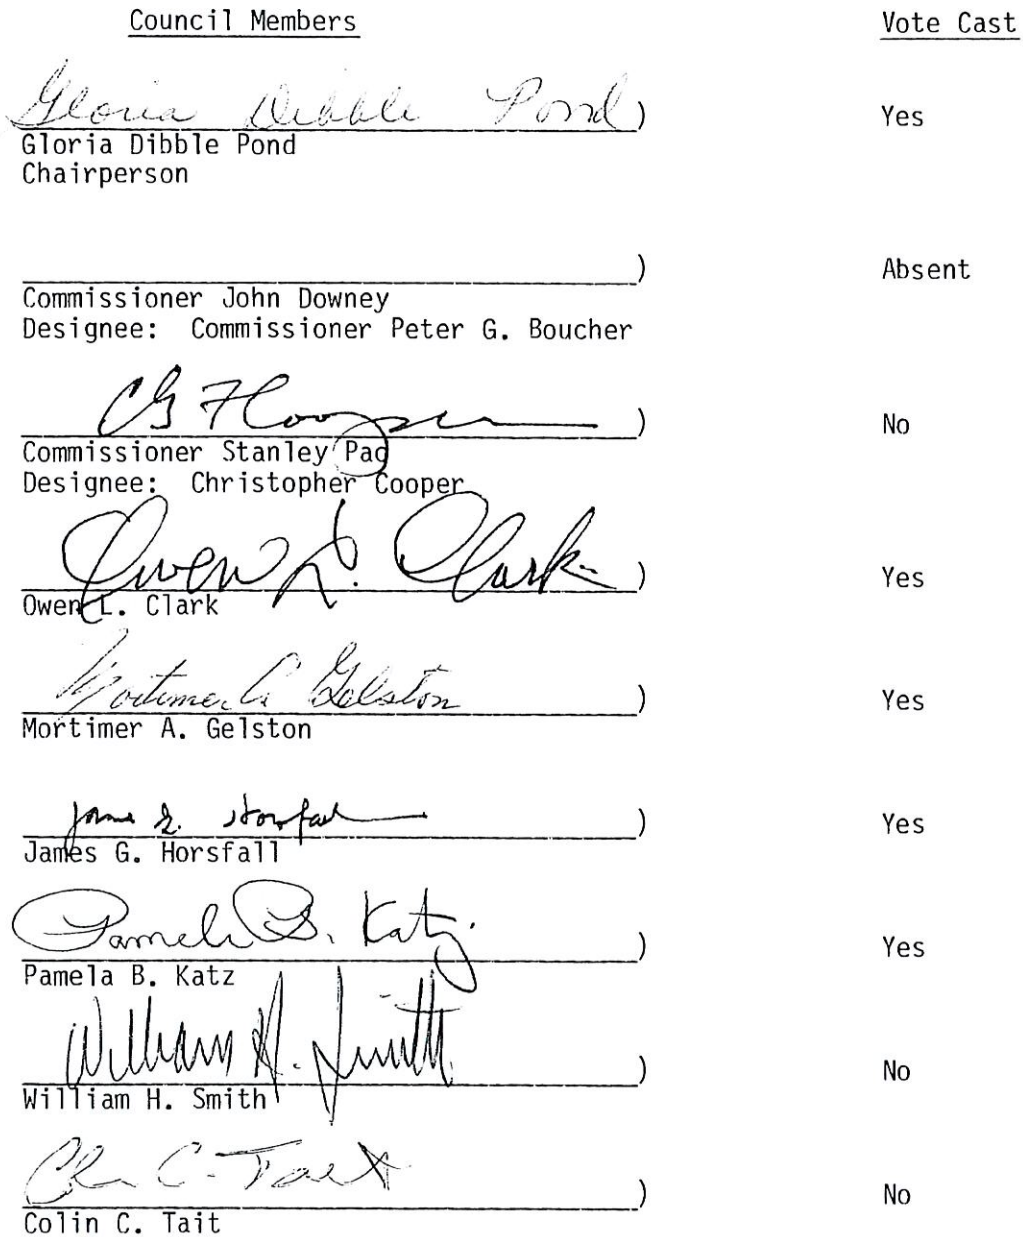 Council Members Vote Cast
Gloria Dibble Pond ) Yes
Gloria Dibble Pond
Chairperson
) Absent
Commissioner John Downey
Designee: Commissioner Peter G. Boucher
Cooper ) No
Commissioner Stanley Pac
Designee: Christopher Cooper
Owen L. Clark ) Yes
Owen L. Clark
Mortimer A Gelston ) Yes
Mortimer A. Gelston
James G. Horsfall ) Yes
James G. Horsfall
Pamela B. Katz ) Yes
Pamela B. Katz
William H. Smith ) No
William H. Smith
C. Tait ) No
Colin C. Tait